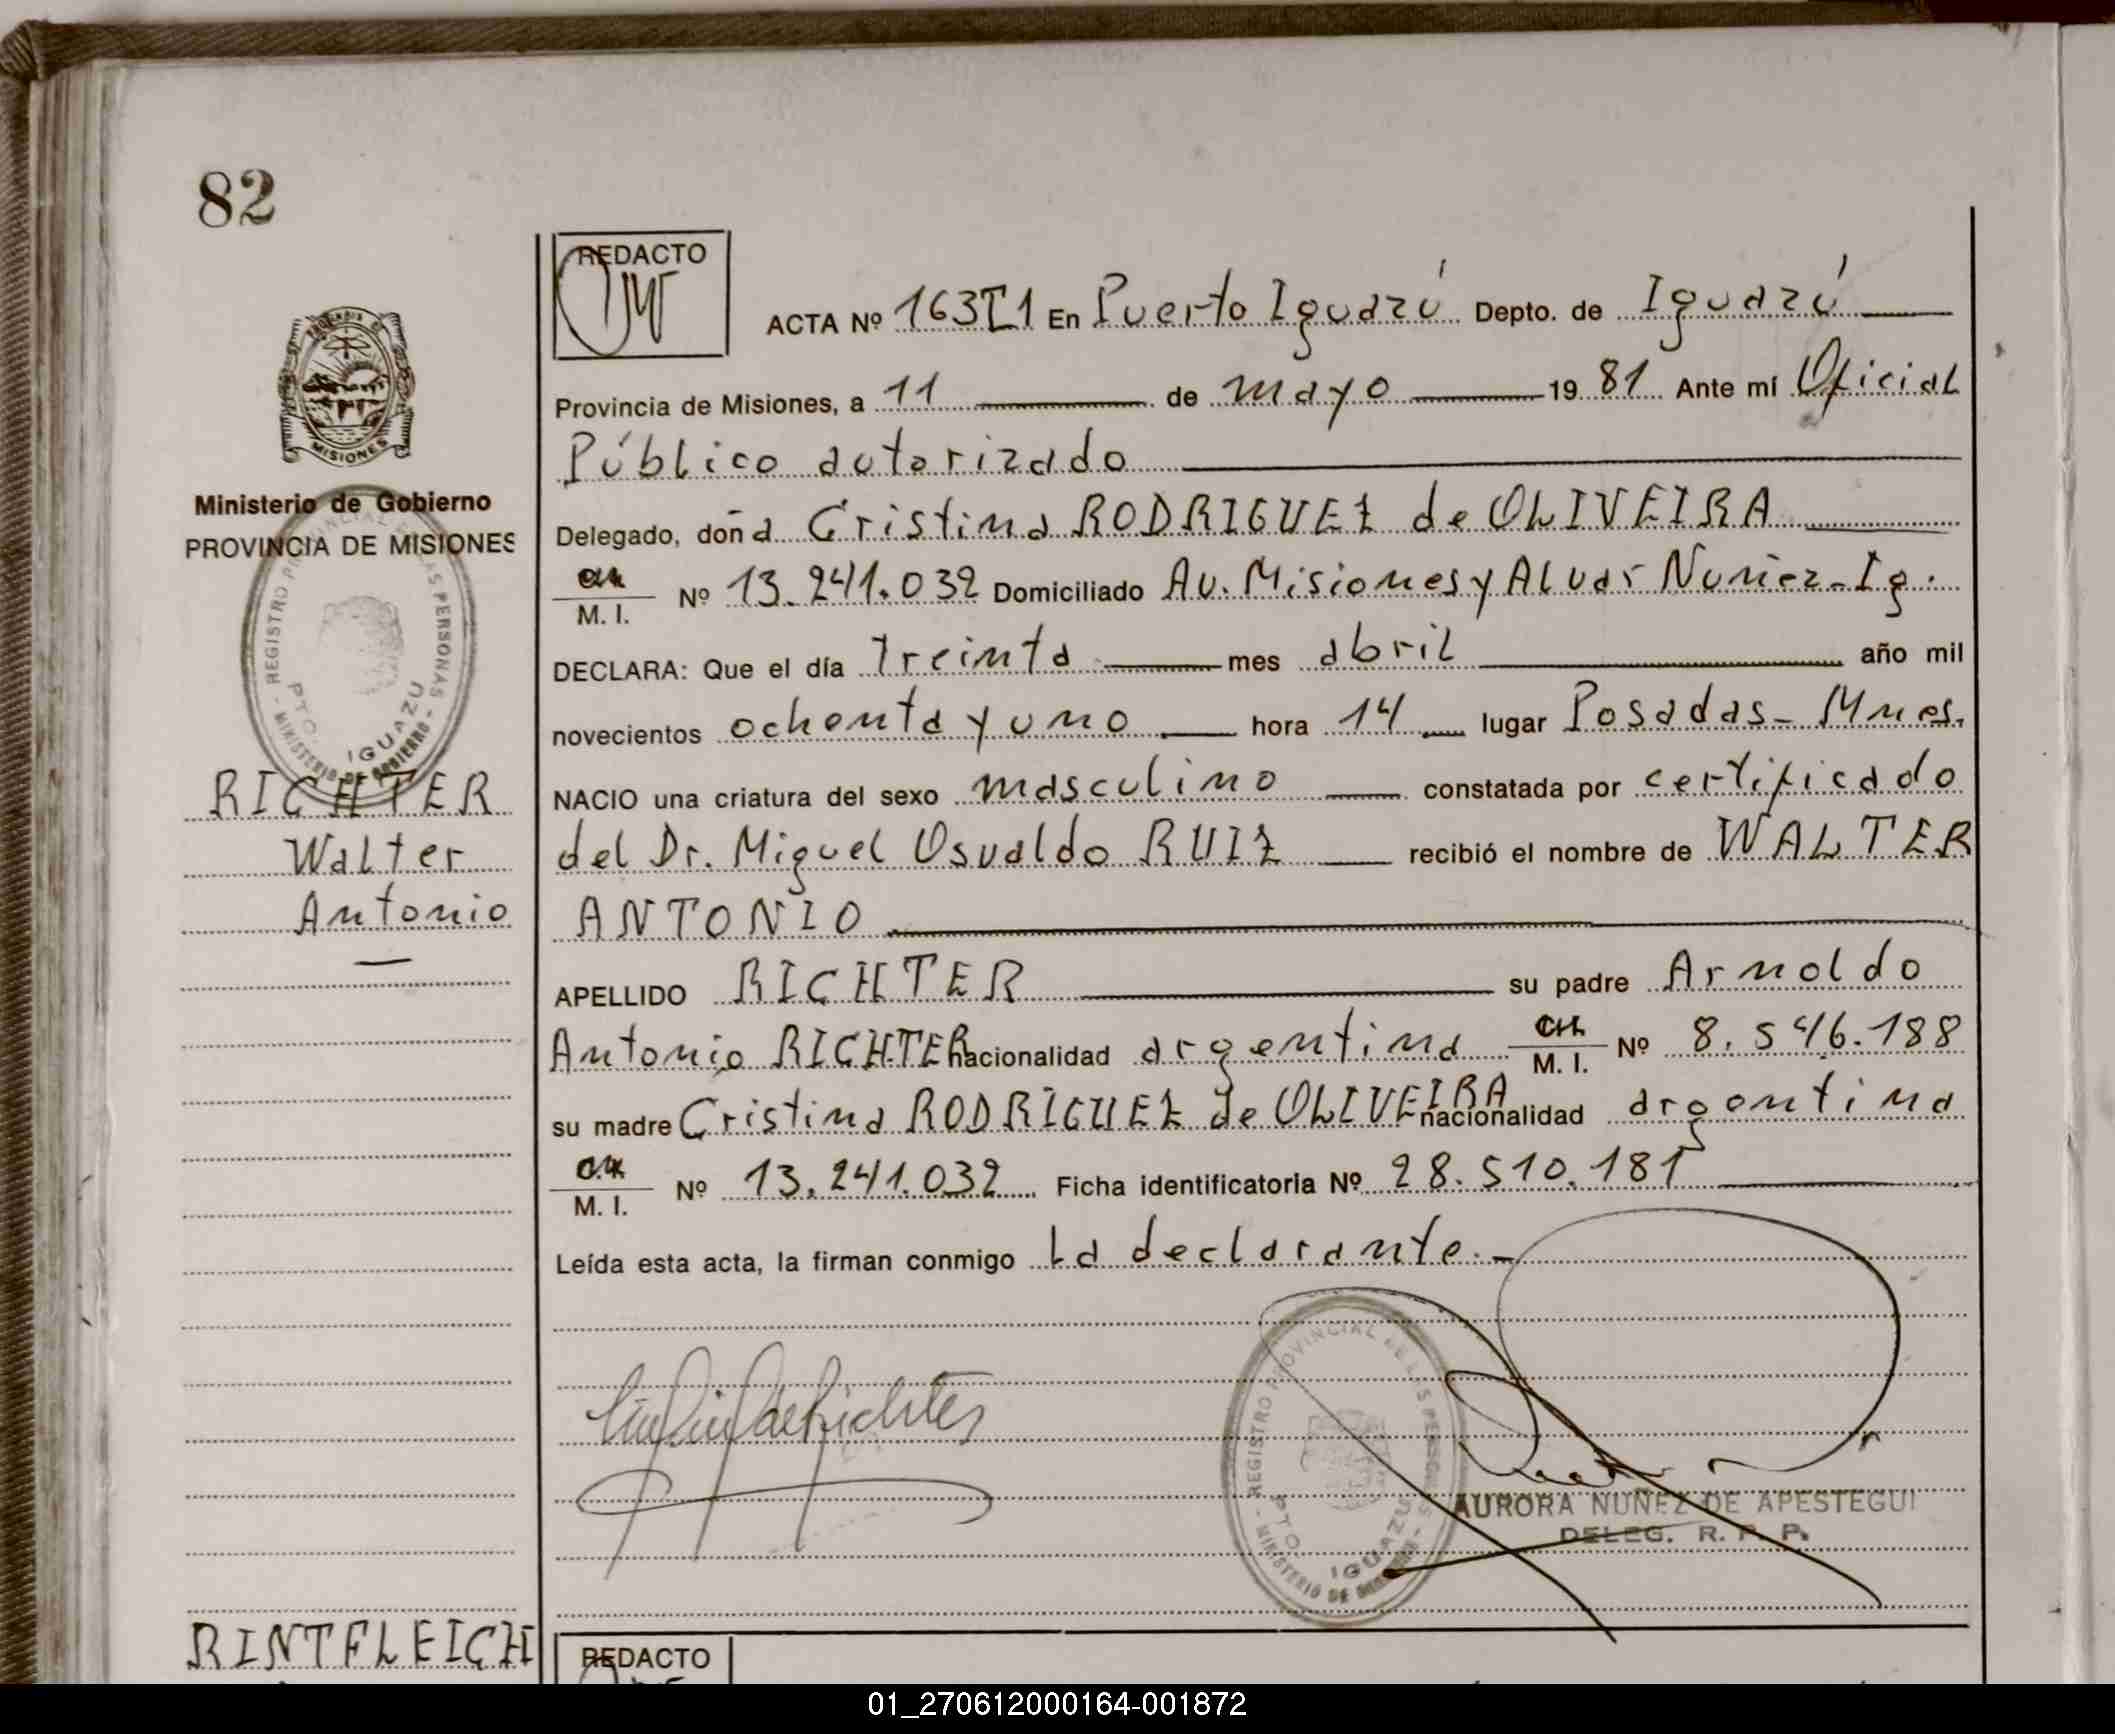 82
REDACTO
ACTA Nº 163T1 En Puerto Iguazú Depto. de Iguazú
Provincia de Misiones, a 11 de mayo 1981 Ante mí Oficial
Público autorizado
Delegado, doña Cristina RODRIGUEZ de OLIVEIRA
M. I. Nº 13.241.032 Domiciliado Av. Misiones y Alvar Nuñez - Ig.
DECLARA: Que el día Treinta mes abril año mil
novecientos ochenta y uno hora 14 lugar Posadas - Mnes.
NACIO una criatura del sexo masculino constatada por certificado
del Dr. Miguel Osvaldo RUIZ recibió el nombre de WALTER
ANTONIO
APELLIDO RICHTER su padre Arnoldo
Antonio RICHTER nacionalidad argentina M. I. Nº 8.546.188
su madre Cristina RODRIGUEZ de OLIVEIRA nacionalidad argentina
M. I. Nº 13.241.032 Ficha identificatoria Nº 28.510.181
Leída esta acta, la firman conmigo La declarante.-
de Richter
REGISTRO PROVINCIAL DE LAS PERSONAS - MINISTERIO DE GOBIERNO -
PTO. IGUAZU
AURORA NUÑEZ DE APESTEGUI
DELEG. R. P. P.
MISIONES
Ministerio de Gobierno
PROVINCIA DE MISIONES
REGISTRO PROVINCIAL DE LAS PERSONAS - MINISTERIO DE GOBIERNO -
PTO. IGUAZU
RICHTER
Walter
Antonio
RINTFLEICH
REDACTO
01_270612000164-001872